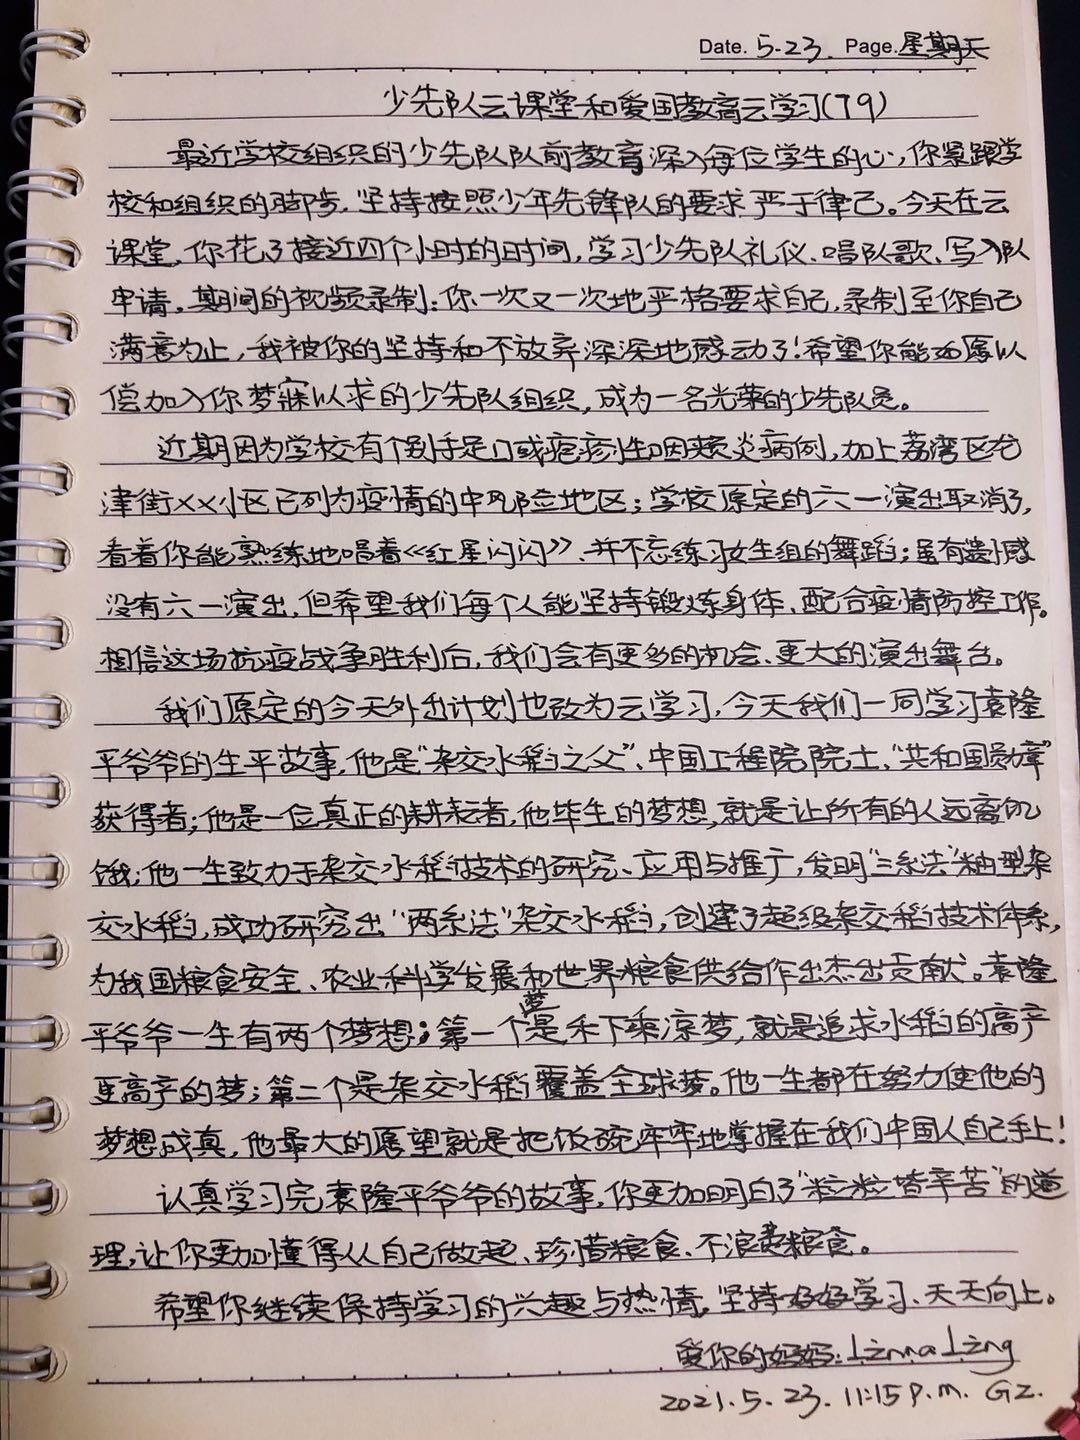 Date. 5.23. Page. 星期天
少先队云课堂和爱国教育云学习(79)
最近学校组织的少先队队前教育深入每位学生的心,你紧跟学
校和组织的脚步,坚持按照少年先锋队的要求严于律己。今天在云
课堂,你花了接近四个小时的时间,学习少先队礼仪、唱队歌、写入队
申请。期间的视频录制:你一次又一次地严格要求自己,录制至你自己
满意为止,我被你的坚持和不放弃深深地感动了!希望你能如愿以
偿加入你梦寐以求的少先队组织,成为一名光荣的少先队员。
近期因为学校有个别手足口或疱疹性咽颊炎病例,加上荔湾区龙
津街××小区已列为疫情的中风险地区;学校原定的六一演出取消了,
看着你能熟练地唱着《红星闪闪》、并不忘练习女生组的舞蹈;虽有遗憾
没有六一演出,但希望我们每个人能坚持锻炼身体、配合疫情防控工作。
相信这场抗疫战争胜利后,我们会有更多的机会、更大的演出舞台。
我们原定的今天外出计划也改为云学习,今天我们一同学习袁隆
平爷爷的生平故事,他是“杂交水稻之父”、中国工程院院士、“共和国勋章”
获得者;他是一位真正的耕耘者,他毕生的梦想,就是让所有的人远离饥
饿;他一生致力于杂交水稻技术的研究、应用与推广,发明“三系法”籼型杂
交水稻,成功研究出“两系法”杂交水稻,创建了超级杂交稻技术体系,
为我国粮食安全、农业科学发展和世界粮食供给作出杰出贡献。袁隆
平爷爷一生有两个梦想;第一个梦是禾下乘凉梦,就是追求水稻的高产
更高产的梦;第二个是杂交水稻覆盖全球梦。他一生都在努力使他的
梦想成真,他最大的愿望就是把饭碗牢牢地掌握在我们中国人自己手上!
认真学习完袁隆平爷爷的故事,你更加明白了“粒粒皆辛苦”的道
理,让你更加懂得从自己做起、珍惜粮食、不浪费粮食。
希望你继续保持学习的兴趣与热情,坚持好好学习、天天向上。
爱你的妈妈:Linna Ling
2021.5.23. 11:15 P.m. GZ.